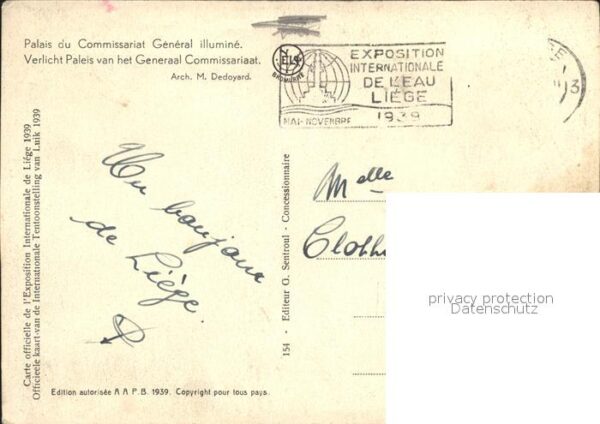 Palais du Commissariat Général illuminé.
Verlicht Paleis van het Generaal Commissariaat.
Arch. M. Dedoyard.
EXPOSITION
INTERNATIONALE
DE L'EAU
LIÉGE
1939
MAI-NOVEMBRE
Carte officielle de l'Exposition Internationale de Liége 1939
Officieele kaart van de Internationale Tentoonstelling van Luik 1939
Un bonjour
de Liége.
154 - Editeur O. Sentroul - Concessionnaire
Melle
privacy protection
Datenschutz
Edition autorisée A A P.B. 1939. Copyright pour tous pays.